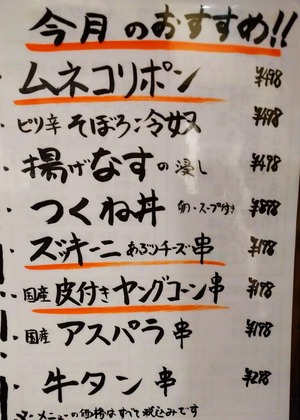 今月のおすすめ!!
ムネコリポン ¥498
ピリ辛そぼろ冷奴 ¥498
揚げなすの浸し ¥498
つくね丼 卵・スープ付き ¥898
ズッキーニあぶりチーズ串 ¥198
国産 皮付きヤングコーン串 ¥198
国産 アスパラ串 ¥198
牛タン串 ¥298
※メニューの価格はすべて税込みです